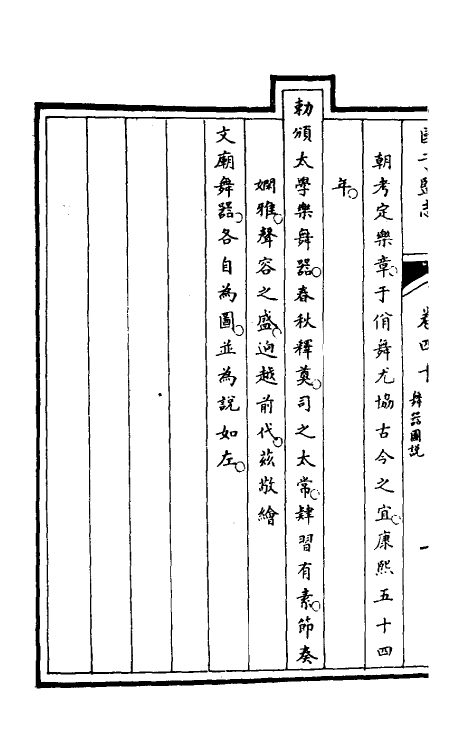 國子監志
卷四十
舞器圖說
一
朝考定樂章于佾舞尤協古今之宜康熙五十四
年
勅頒太學樂舞器春秋釋奠司之太常肄習有素節奏
嫻雅聲容之盛逈越前代兹敬繪
文廟舞器各自為圖並為說如左